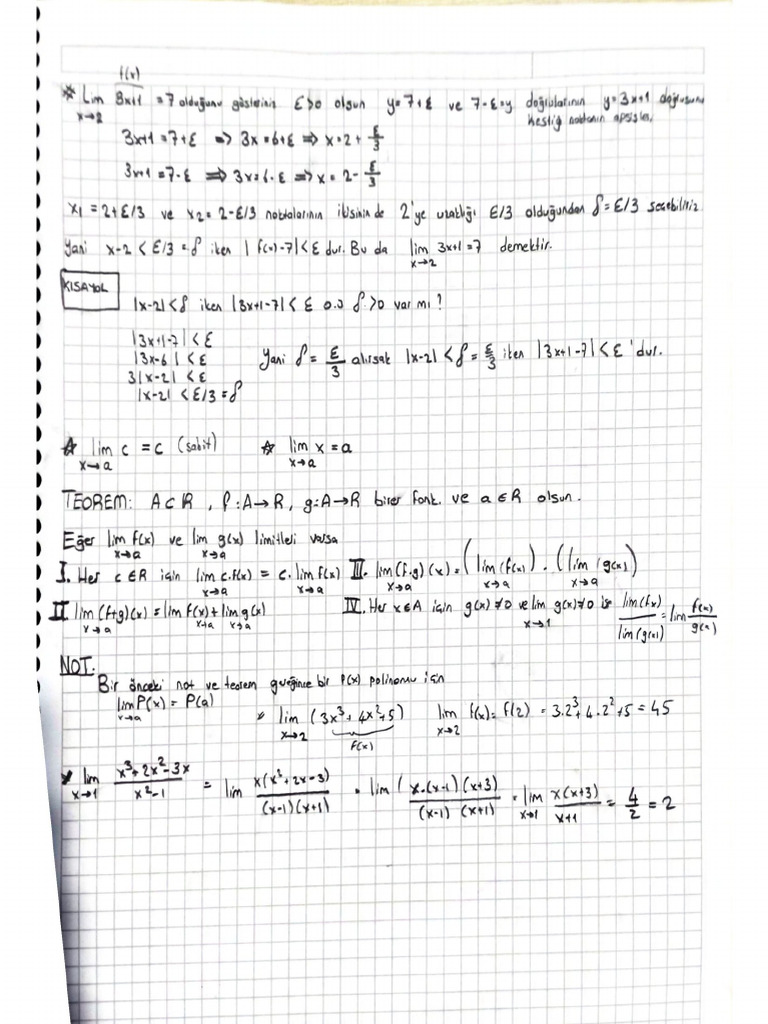 f(x)
* Lim x→2 3x+1 = 7 olduğunu gösteriniz ε>0 olsun y=7+ε ve 7-ε=y doğrularının y=3x+1 doğrusunu
kestiği noktanın apsisler,
3x+1=7+ε ⇒ 3x=6+ε ⇒ x=2+ε/3
3x+1=7-ε ⇒ 3x=6-ε ⇒ x=2-ε/3
x₁=2+ε/3 ve x₂=2-ε/3 noktalarının ikisinin de 2'ye uzaklığı ε/3 olduğundan δ=ε/3 seçebiliriz
Yani x-2<ε/3=δ iken |f(x)-7|<ε dur. Bu da lim x→2 3x+1=7 demektir.
KISAYOL
|x-2|<δ iken |3x+1-7|<ε o.ş δ>0 var mı?
|3x+1-7|<ε
|3x-6|<ε Yani δ=ε/3 alırsak |x-2|<δ=ε/3 iken |3x+1-7|<ε'dur.
3|x-2|<ε
|x-2|<ε/3=δ
☆ lim x→a c = c (sabit) ☆ lim x→a x = a
TEOREM: A⊂ℝ, f:A→R, g:A→R birer fonk. ve a∈R olsun.
Eğer lim x→a f(x) ve lim x→a g(x) limitleri varsa
I. Her c∈R için lim x→a c.f(x) = c.lim x→a f(x) III. lim x→a (f.g)(x) = (lim x→a (f(x)) . (lim x→a (g(x))
II lim x→a (f+g)(x) = lim x→a f(x)+lim x→a g(x) IV. Her x∈A için g(x)≠0 ve lim x→1 g(x)≠0 ise lim(fx)/lim(g(x)) = lim f(x)/g(x)
NOT:
Bir önceki not ve teorem gereğince bir P(x) polinomu için
lim x→a P(x) = P(a) * lim x→2 (3x³+4x²+5) lim x→2 f(x)=f(2) = 3.2³+4.2²+5 = 45
f(x)
* lim x→1 x³+2x²-3x/x²-1 = lim x(x²+2x-3)/(x-1)(x+1) = lim (x.(x-1)(x+3)/(x-1)(x+1) = lim x→1 x(x+3)/x+1 = 4/2 = 2